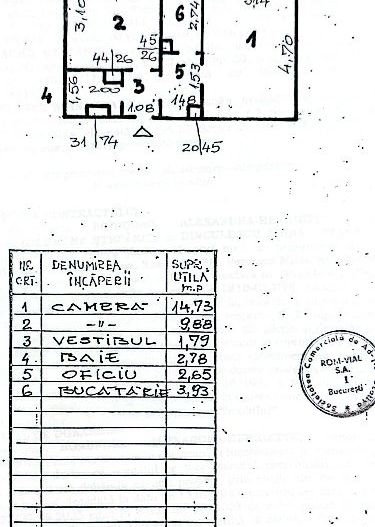 3,10
2
6
2,74
1
4,70
45
26
44 26
5
1,53
4
1,56
2.00
3
1.08
1.48
31 74
20 45
NR. CRT.
DENUMIREA ÎNCĂPERII
SUPR. UTILĂ m.p
1 CAMERA 14,73
2 -"- 9,88
3 VESTIBUL 1,79
4 BAIE 2,78
5 OFICIU 2,65
6 BUCATARIE 3,93
Comercială de
ROM-VIAL
S.A.
1
București